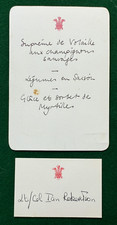 Suprême de Volaille
aux champignons
sauvages
Légumes en Saison
Glâce et sorbet de
Myrtilles
Lt/Col Ian Robertson